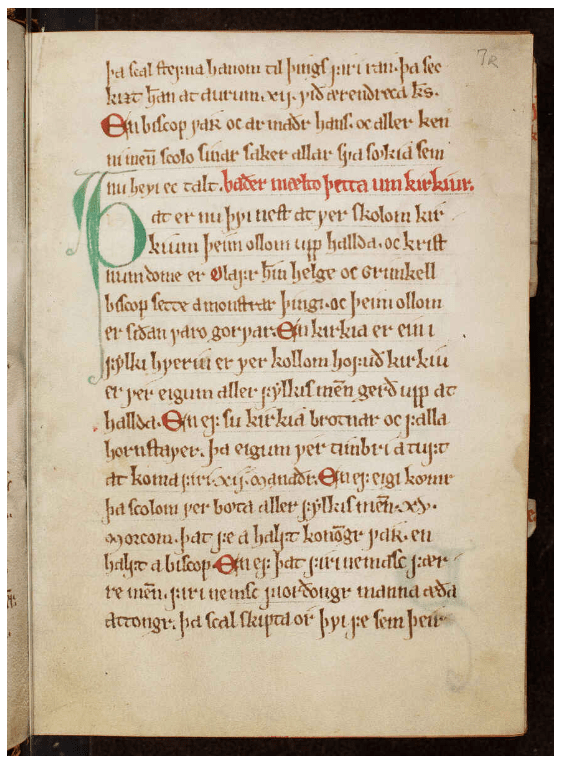 7R
þa scal stefna hanom til þings firi ran. þa sec
kizt han at aurum .xij. við ærendreca ks.
En biscop var oc ar maðr hans. oc aller ken
ni menn scolo sinar saker allar sva sokia sem
nu hevi ec talt. baðer mælto þetta um kirkiur.
Þat er nu þvi nest at ver skolom kir
kium þeim ollom upp hallda. oc krist
num dome er Olafr hin helge oc Grimkell
biscop sette a monstrar þingi. oc þeim ollom
er siðan varo gorvar. En kirkia er ein i
fylki hveriu er ver kollom hofuð kirkiu
er ver eigum aller fylkis menn gerð upp at
hallda. En ef su kirkia brotnar oc falla
hornstaver. þa eigum ver timbri a tuft
at koma firi .xij. manaðr. En ef eigi komr
þa scolom ver bota aller fylkis menn .xv.
morcom. þat fe a halft konongr var. en
halft a biscop. En ef þat firi nemasc fær
re menn. firi nemsc fiorðongr manna æða
attongr. þa scal skipta or þvi fe sem þeir